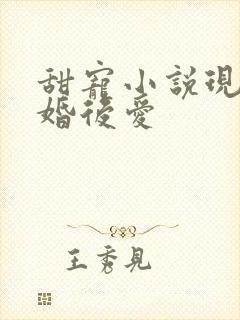 甜寵小說現
婚後愛
王秀見